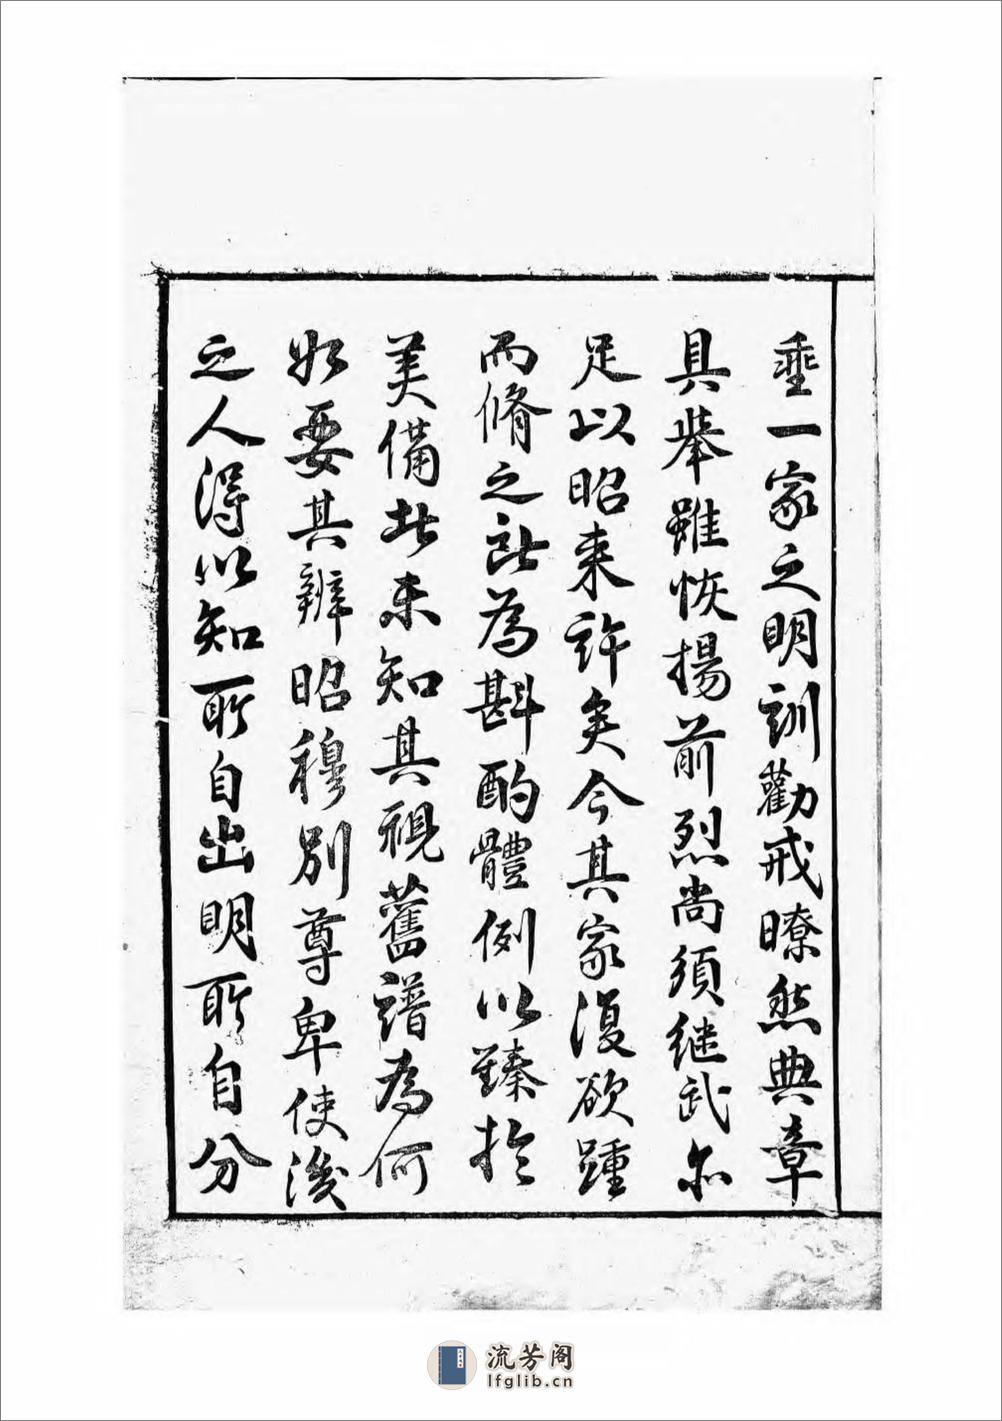 垂一家之明訓勸戒瞭然典章
具舉雖恢揚前烈尚須繼武亦
足以昭来許矣今其家復欲踵
而脩之所為斟酌體例以臻扵
美備者未知其視舊譜為何
如要其辨昭穆別尊卑使後
之人得以知所自出明所自分
流芳阁
lfglib.cn